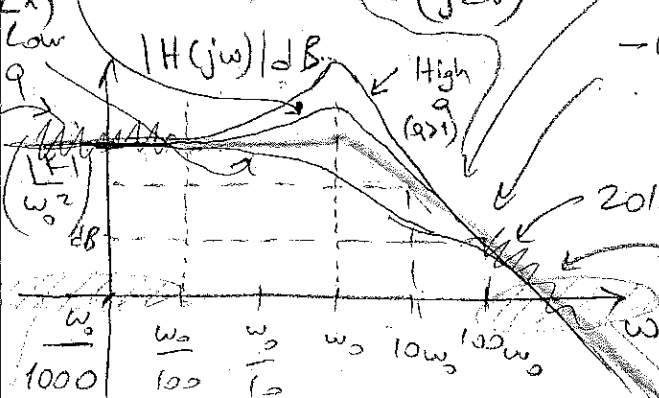 Low
Q
|H(jω)| dB
High
Q
(Q>1)
1
ω₀²
dB
201
ω₀/1000
ω₀/100
ω₀/10
ω₀
10ω₀
100ω₀
ω